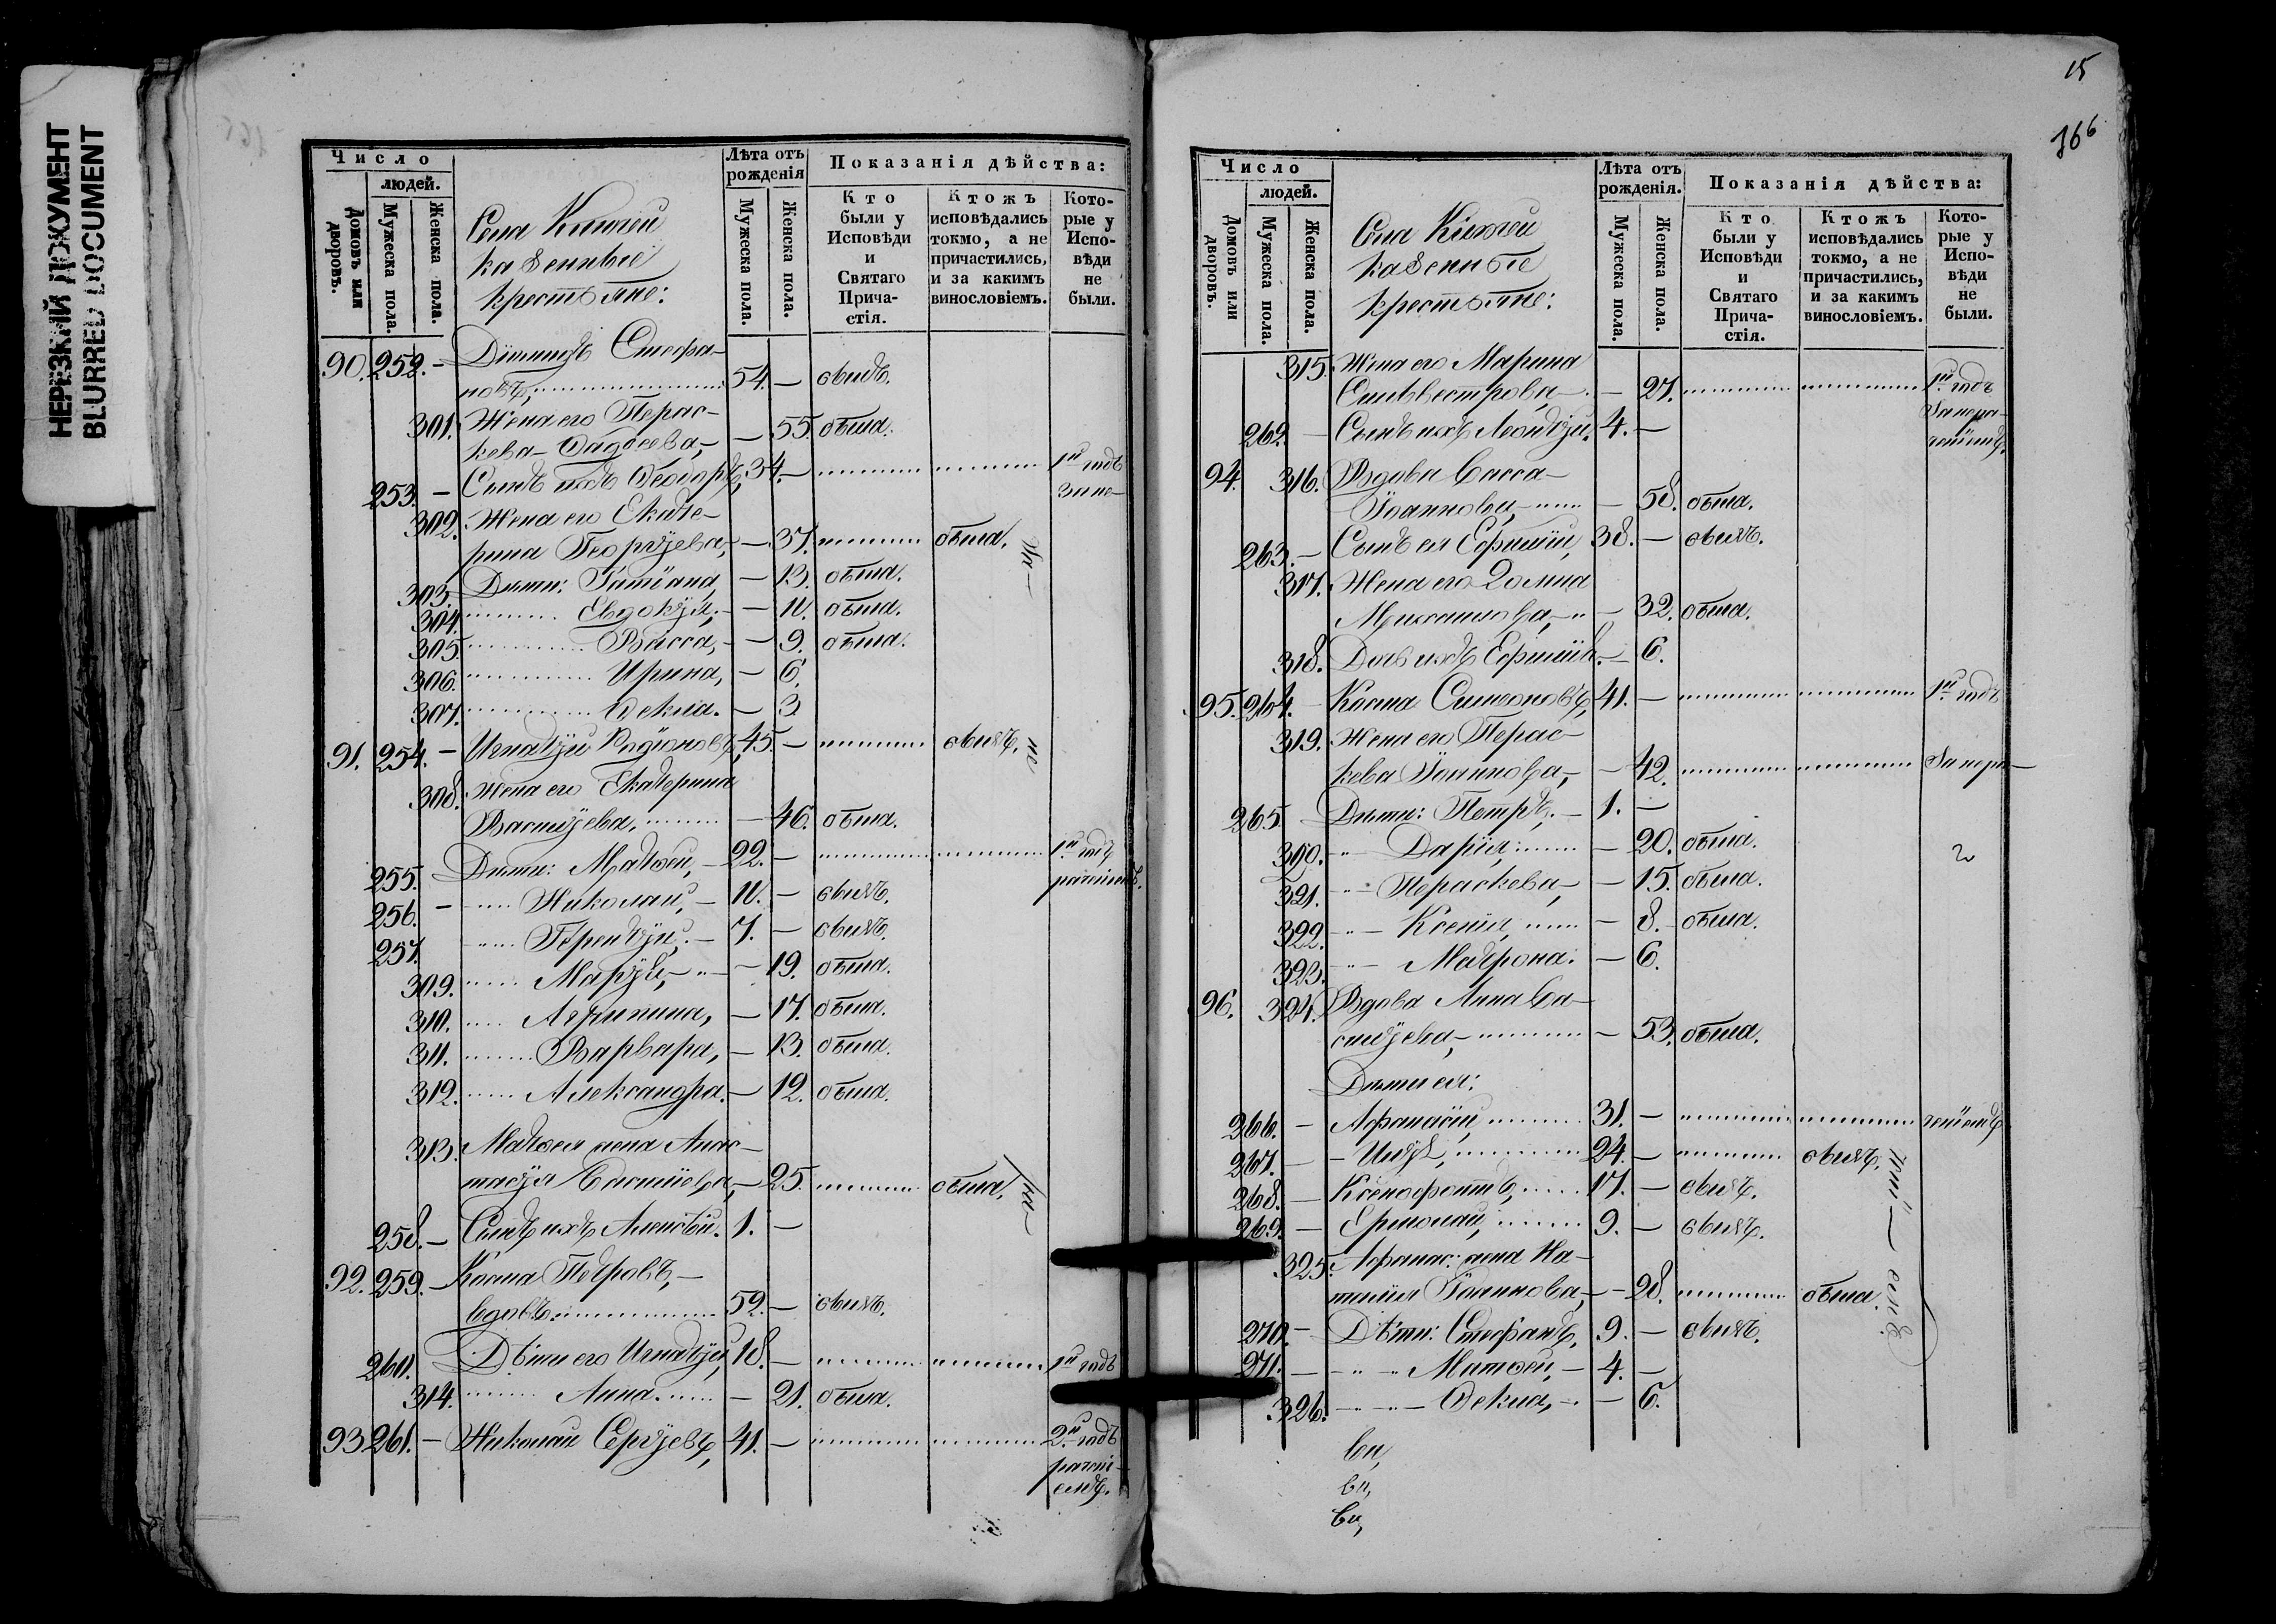 НЕРЕЗКИЙ ДОКУМЕНТ
BLURRED DOCUMENT
Число
людей.
Домовъ или дворовъ.
Мужеска пола.
Женска пола.
Лѣта отъ рожденія
Мужеска пола.
Женска пола.
Показанія дѣйства:
Кто были у Исповѣди и Святаго Прича-стія.
Ктожъ исповѣдались токмо, а не причастились, и за какимъ винословіемъ.
Кото-рые у Испо-вѣди не были.
Села
казенные
крестьяне:
90. 252. —
новъ, 54. — былъ.
301. Жена его Перас-
кева Фадѣева, — 55. была.
253. — Сынъ ихъ Ѳеодоръ, 34. — 1й годъ
за не-
302. Жена его Екате-
рина Георгіева, — 37. была.
303. Дѣти: Татіана, — 13. была.
304. Евдокія, — 11. была.
305. Васса, — 9. была.
306. Ирина, — 6.
307. Ѳекла. — 3.
91. 254. — Игнатій Родіоновъ, 45. — бывъ. не
308. Жена его Екатерина
Василіева, — 46. была.
255. Дѣти: Матѳей, — 22. — 1й годъ
рачені
256. — Николай, — 11. — бывъ.
257. Терентій, — 7. — бывъ.
309. Марія, — 19. была.
310. Агрипина, — 17. была.
311. Варвара, — 13. была.
312. Александра. — 12. была.
313. Матѳея жена Анас-
тасія Василіева, — 25. была.
258. — Сынъ ихъ Алексѣй. 1. —
92. 259. — Косма Петровъ, —
вдовъ. 52. — бывъ.
260. Дѣти его Игнатій, 18. — 1й годъ
314. Анна. — 21. была.
93 261. — Николай Сергіевъ, 41. — 2й годъ
рачені-
емъ.
15
166
Число
людей.
Домовъ или дворовъ.
Мужеска пола.
Женска пола.
Лѣта отъ рожденія.
Мужеска пола.
Женска пола.
Показанія дѣйства:
Кто были у Исповѣди и Святаго Прича-стія.
Ктожъ исповѣдались токмо, а не причастились, и за какимъ винословіемъ.
Кото-рые у Испо-вѣди не были.
Села
казенные
крестьяне:
315. Жена его Марина
Сильвестрова, — 27. 1й годъ
262. — Сынъ ихъ Леонтій. 4. —
94. 316. Вдова Васса
Іоаннова, — 58. была.
263. — Сынъ ея Ефимій, 38. — бывъ.
317. Жена его Домна
Михаилова, — 32. была.
318. Дочь ихъ Ефимія. — 6.
95. 264. Косма Симеоновъ, 41. — 1й годъ
319. Жена его Перас-
кева Іоаннова, — 42. За нера-
265. Дѣти: Петръ, — 1. —
320. Дарія, — 20. была.
321. Пераскева, — 15. была.
322. Ксенія, — 8. была.
323. Матрона. — 6.
96. 324. Вдова Анна Ва-
силіева, — 53. была.
Дѣти ея:
266. — Афанасій, 31. — ченіемъ
267. — Илія, 24. — бывъ.
268. — Ксенофонтъ, 17. — бывъ.
269. — Ермолай, 9. — бывъ.
325. Афанас: жена На-
талия Іоаннова, — 28. была.
270. — Дѣти: Стефанъ, 9. — бывъ.
271. — Матѳей, — 4. —
326. Ѳекла, — 6.